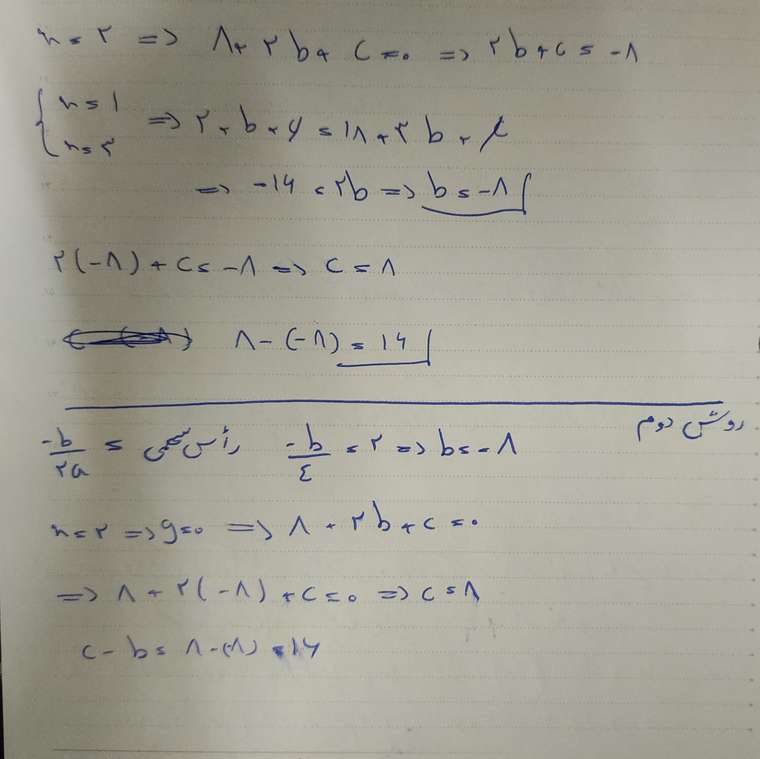 x = ۲ => ۸ + ۲b + c = ۰ => ۲b + c = -۸
{ x = ۱ x = ۳ => ۲ + b + c = ۱۸ + ۳b + c
=> -۱۶ = ۲b => b = -۸
۲(-۸) + c = -۸ => c = ۸
۸ - (-۸) = ۱۶
روش دوم
-b/۲a = رأس سهمی -b/٤ = ۲ => b = -۸
x = ۲ => y = ۰ => ۸ + ۲b + c = ۰
=> ۸ + ۲(-۸) + c = ۰ => c = ۸
c - b = ۸ - (-۸) = ۱۶